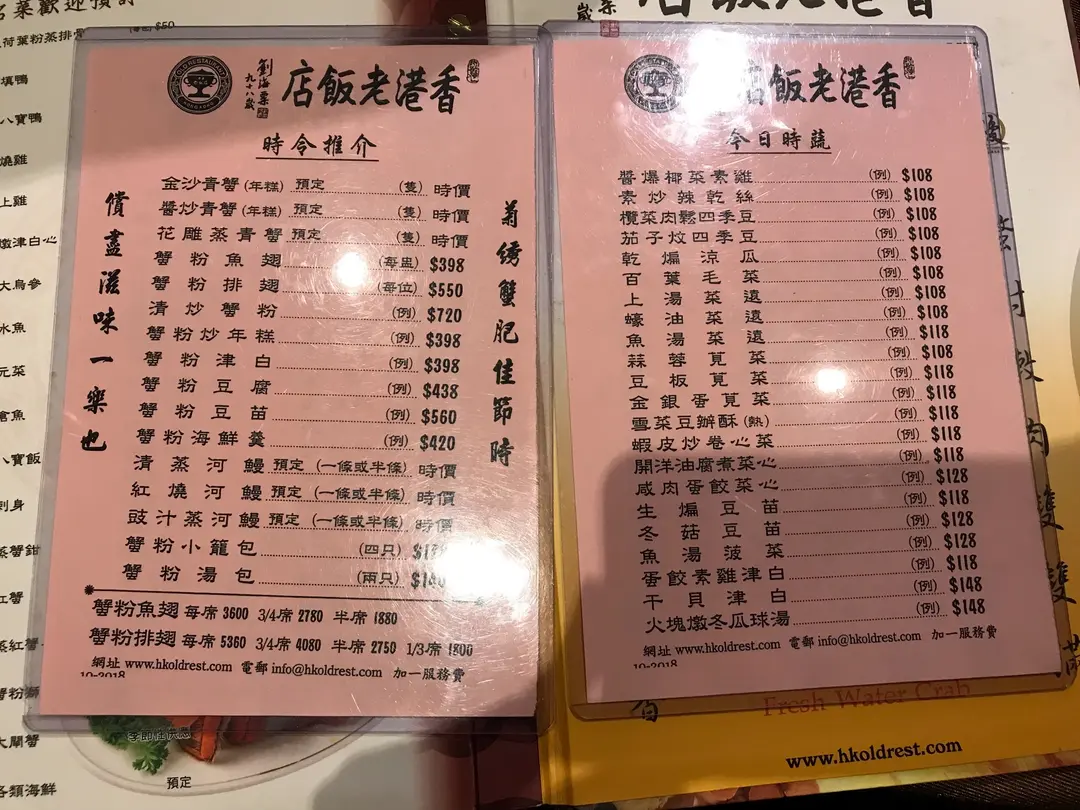 名菜歡迎預訂
荷葉粉蒸排骨
(每包) $50
填鴨
八寶鴨
燒雞
上雞
燉津白心
大烏參
水魚
元菜
鯧魚
八寶飯
刺身
蒸蟹鉗
紅蟹
大閘蟹
各類海鮮
預定
OLD RESTAURANT
HONG KONG
劉海粟
九十八歲
店飯老港香
時令推介
金沙青蟹 (年糕) 預定 (隻) 時價
醬炒青蟹 (年糕) 預定 (隻) 時價
花雕蒸青蟹 預定 (隻) 時價
蟹粉魚翅 (每盅) $398
蟹粉排翅 (每位) $550
清炒蟹粉 (例) $720
蟹粉炒年糕 (例) $398
蟹粉津白 (例) $398
蟹粉豆腐 (例) $438
蟹粉豆苗 (例) $560
蟹粉海鮮羹 (例) $420
清蒸河鰻 預定 (一條或半條) 時價
紅燒河鰻 預定 (一條或半條) 時價
豉汁蒸河鰻 預定 (一條或半條) 時價
蟹粉小籠包 (四只)
蟹粉湯包 (兩只)
菊綉蟹肥佳節時
償盡滋味一樂也
蟹粉魚翅 每席 3600 3/4席 2780 半席 1880
蟹粉排翅 每席 5360 3/4席 4080 半席 2750 1/3席 1800
網址 www.hkoldrest.com 電郵 info@hkoldrest.com 加一服務費
10-2018
店飯老港香
今日時蔬
醬爆椰菜素雞 (例) $108
素炒辣乾絲 (例) $108
欖菜肉鬆四季豆 (例) $108
茄子炆四季豆 (例) $108
乾煸涼瓜 (例) $108
百葉毛菜 (例) $108
上湯菜遠 (例) $108
蠔油菜遠 (例) $108
魚湯菜遠 (例) $118
蒜蓉莧菜 (例) $108
豆板莧菜 (例) $118
金銀蛋莧菜 (例) $118
雪菜豆瓣酥 (熱) (例) $118
蝦皮炒卷心菜 (例) $118
開洋油腐煮菜心 (例) $118
咸肉蛋餃菜心 (例) $128
生煸豆苗 (例) $118
冬菇豆苗 (例) $128
魚湯菠菜 (例) $128
蛋餃素雞津白 (例) $118
干貝津白 (例) $148
火塊燉冬瓜球湯 (例) $148
網址 www.hkoldrest.com 電郵 info@hkoldrest.com 加一服務費
10-2018
Fresh Water Crab
www.hkoldrest.com